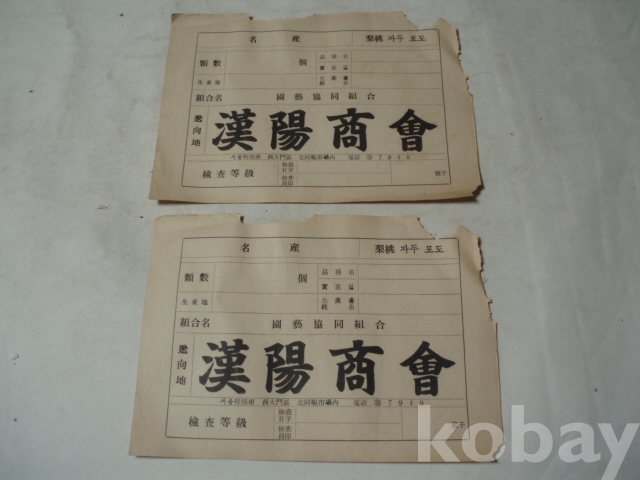 名 產 梨桃 자두 포도
顆數 個 品種名
實重量
生產地 生產者姓名
組合名 園藝協同組合
送向地 漢陽商會
서울特別市 西大門區 北阿峴市場內 電話 ③ 7949
檢查等級 檢查日字
檢查員印
名 產 梨桃 자두 포도
顆數 個 品種名
實重量
生產地 生產者姓名
組合名 園藝協同組合
送向地 漢陽商會
서울特別市 西大門區 北阿峴市場內 電話 ③ 7949
檢查等級 檢查日字
檢查員印
kobay